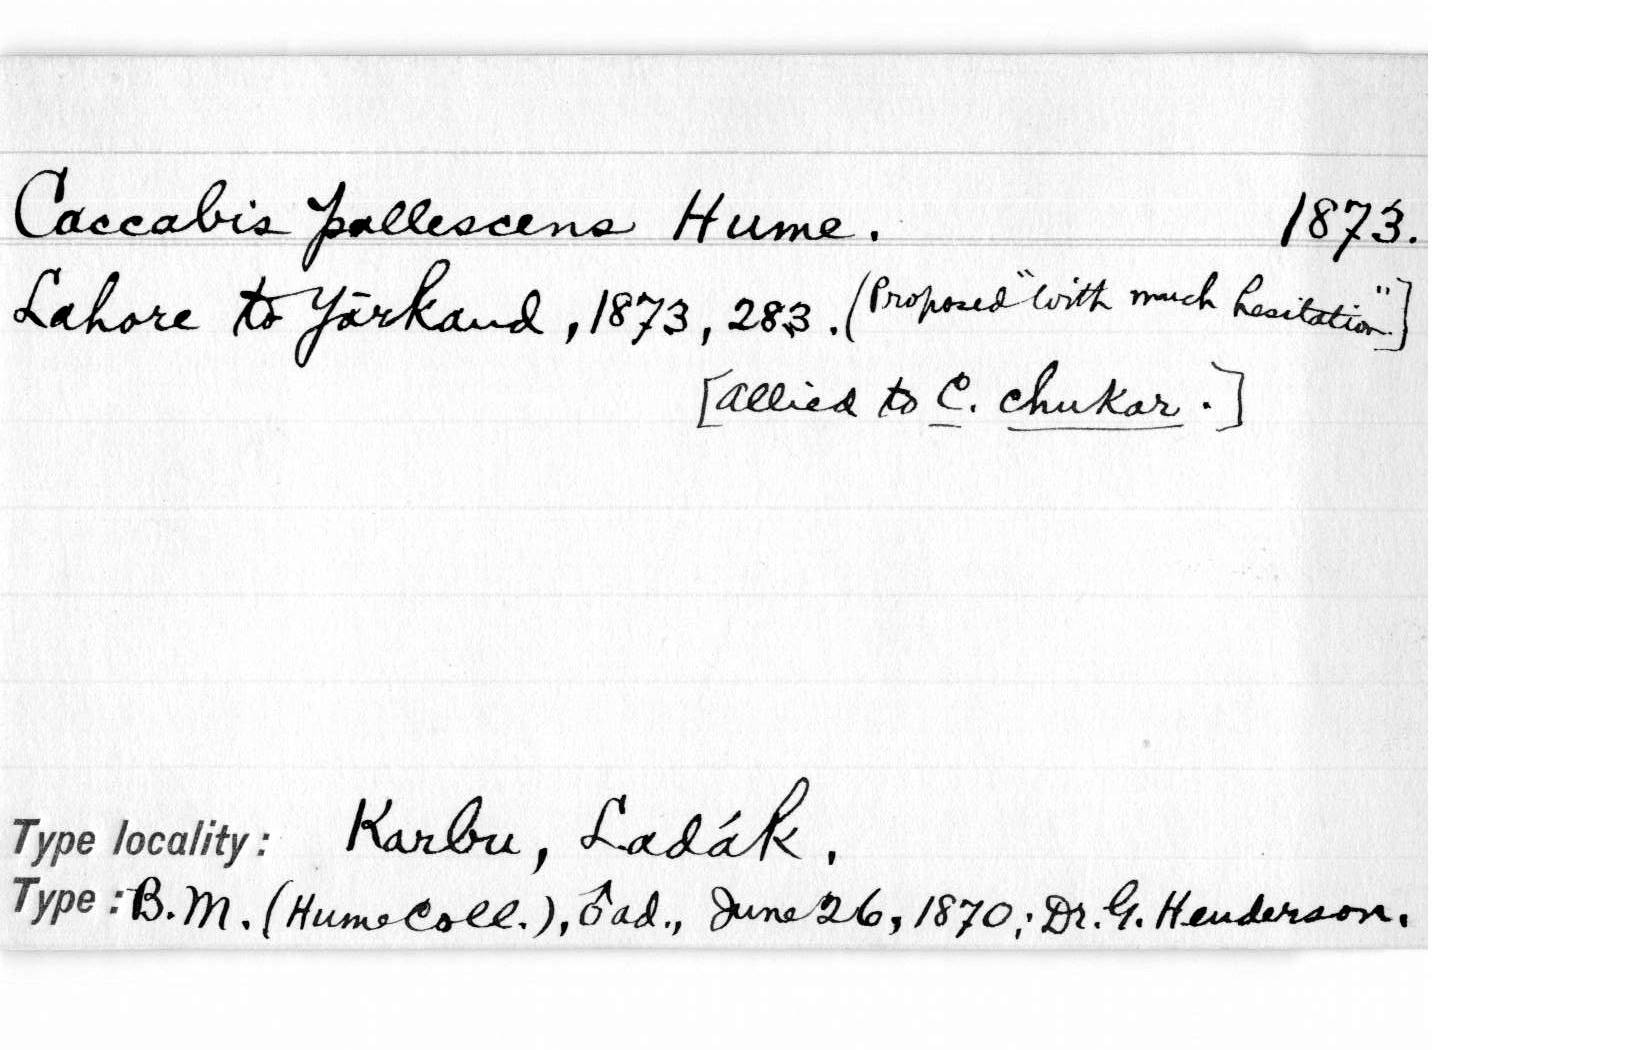 Caccabis pallescens Hume. 1873.
Lahore to Yārkand, 1873, 283. (Proposed "with much hesitation"]
[allied to C. chukar.]
Type locality: Karbu, Ladák.
Type: B.M. (Hume Coll.), ♂ ad., June 26, 1870; Dr. G. Henderson.